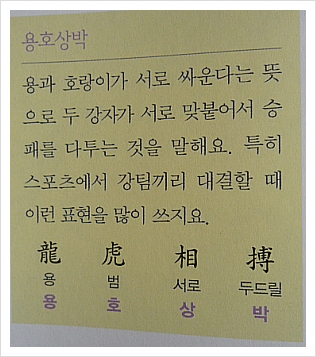 용호상박
용과 호랑이가 서로 싸운다는 뜻
으로 두 강자가 서로 맞붙어서 승
패를 다투는 것을 말해요. 특히
스포츠에서 강팀끼리 대결할 때
이런 표현을 많이 쓰지요.
龍 虎 相 搏
용 범 서로 두드릴
용 호 상 박